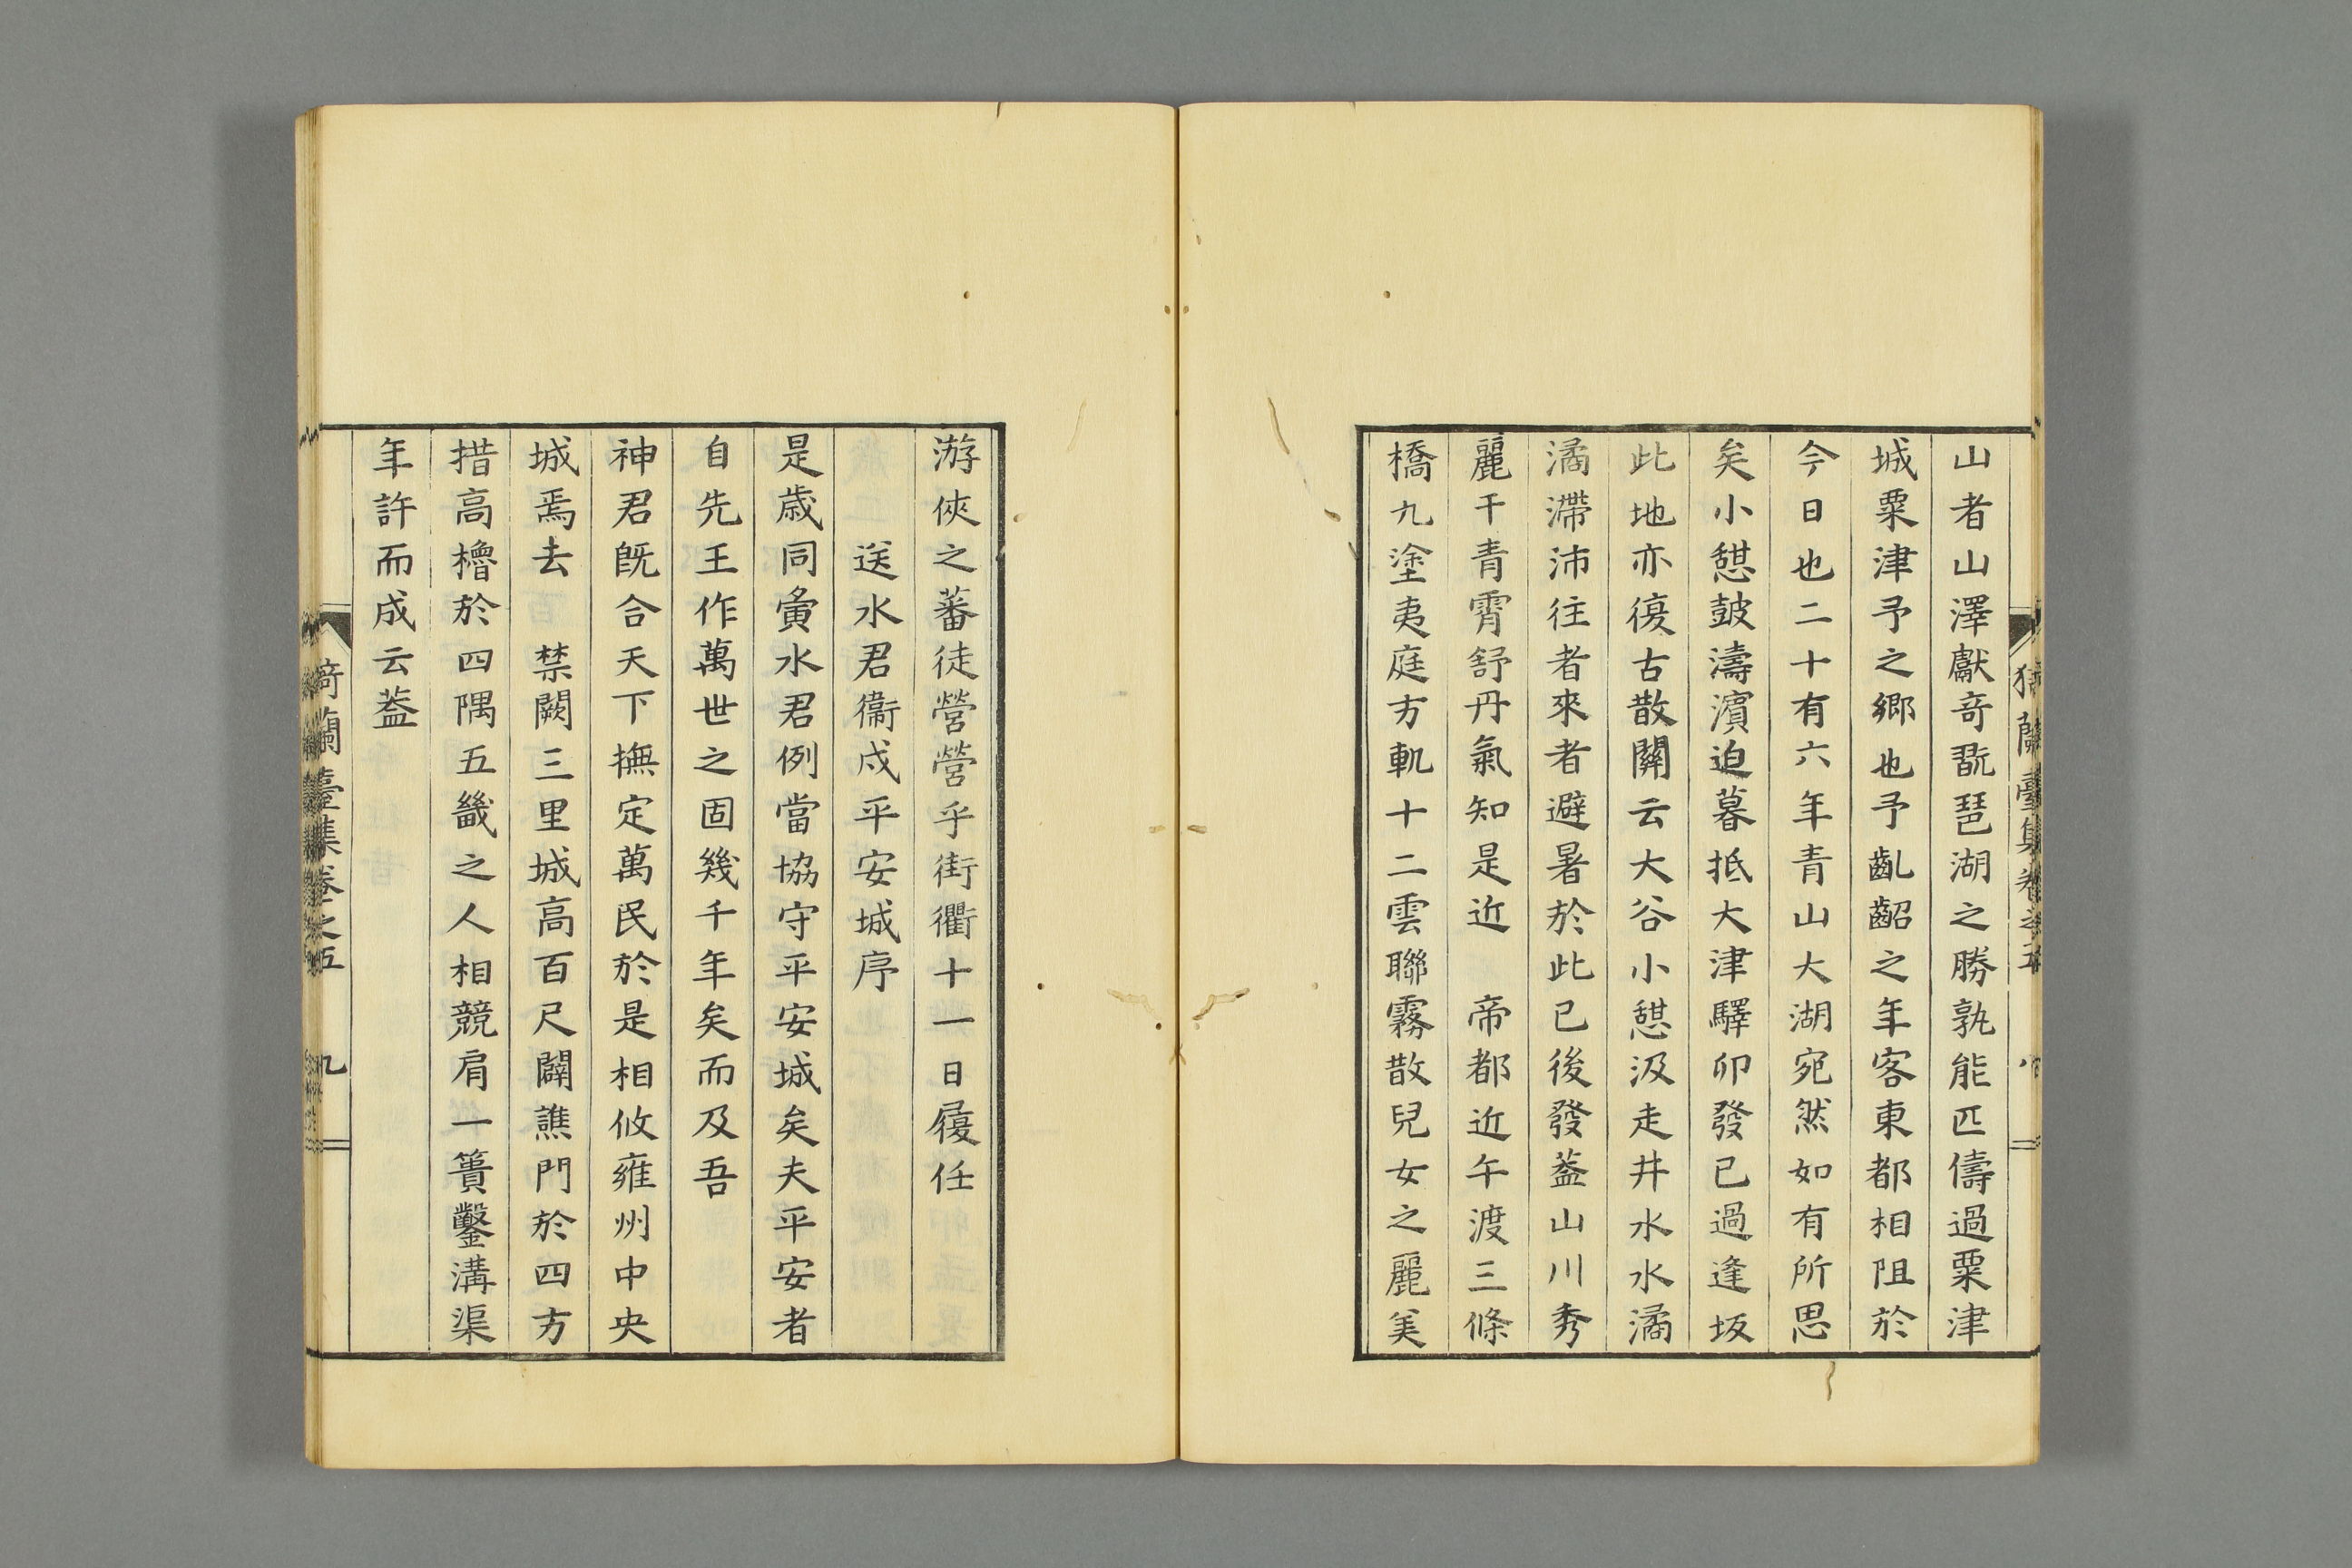 山者山澤獻奇翫琵湖之勝孰能匹儔過粟津
城粟津予之鄉也予齓齠之年客東都相阻於
今日也二十有六年青山大湖宛然如有所思
矣小憇皷濤濱迫暮抵大津驛卯發已過逢坂
此地亦復古散關云大谷小憇汲走井水水潏
潏滯沛往者來者避暑於此已後發葢山川秀
麗干青霄舒丹氣知是近　帝都近午渡三條
橋九塗夷庭方軌十二雲聯霧散兒女之麗美
猗蘭臺集卷之五　八
游俠之蕃徒營營乎街衢十一日履任
送水君衞戍平安城序
是歳同寅水君例當協守平安城矣夫平安者
自先王作萬世之固幾千年矣而及吾
神君旣合天下撫定萬民於是相攸雍州中央
城焉去　禁闕三里城高百尺闢譙門於四方
措高櫓於四隅五畿之人相競肩一簣鑿溝渠
年許而成云葢
猗蘭臺集卷之五　九